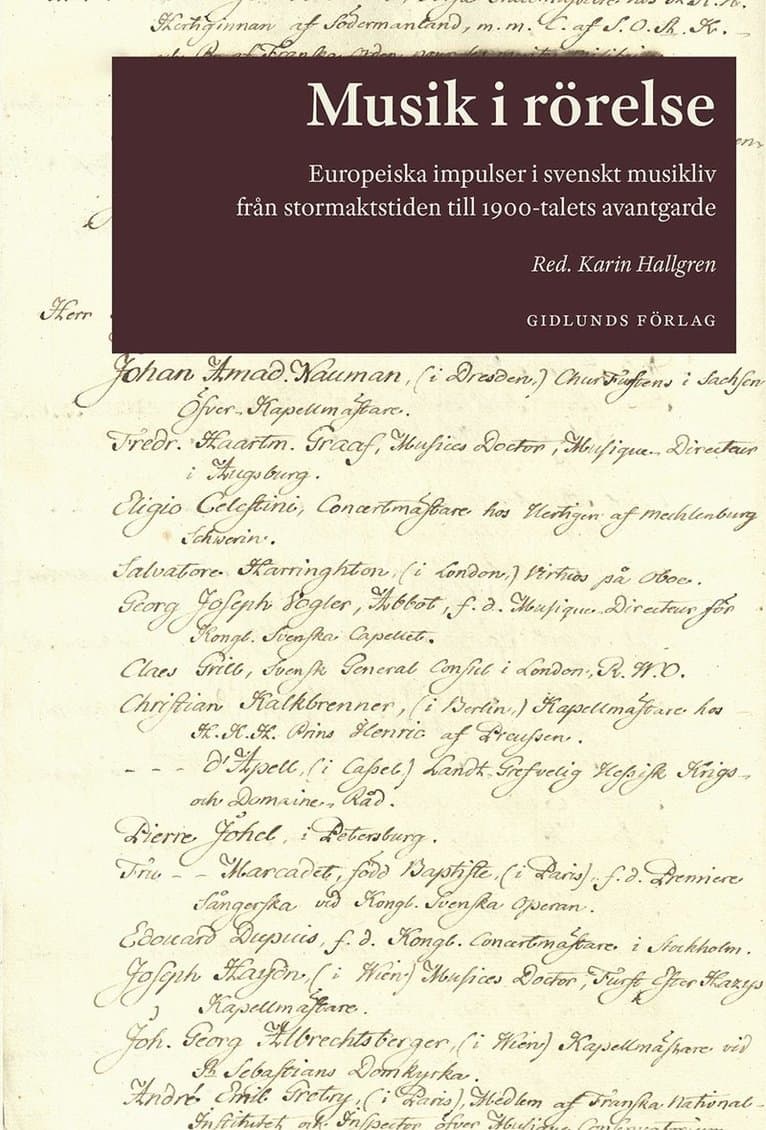 Hertiginnan af Södermanland, m.m. C. af S. O. St. K.
Musik i rörelse
Europeiska impulser i svenskt musikliv
från stormaktstiden till 1900-talets avantgarde
Red. Karin Hallgren
GIDLUNDS FÖRLAG
Herr
Johan Amad. Nauman, (i Dresden,) ChurFurstens i Sachsen
Öfver-Kapellmästare.
Fredr. Haartm. Graaf, Musices Doctor, Musique-Directeur
i Augsburg.
Eligio Celestini, Concertmästare hos Hertigen af Mecklenburg
Schwerin.
Salvatore Harringhton, (i London,) Virtuos på Oboe.
Georg Joseph Vogler, Abbot, f. d. Musique-Directeur för
Kongl. Svenska Capellet.
Claes Grill, Svensk General Consul i London, R. W. O.
Christian Kalkbrenner, (i Berlin,) Kapellmästare hos
H. K. H. Prins Henric af Preussen.
- - - d'Apell, (i Cassel) Landt-Grefvelig Hessisk Krigs-
och Domaine-Råd.
Pierre Johel, i Petersburg.
Fru - - Marcadet, född Baptiste, (i Paris), f. d. Premiere
Sångerska vid Kongl. Svenska Operan.
Edouard Dupuis, f. d. Kongl. Concertmästare i Stockholm.
Joseph Haydn, (i Wien) Musices Doctor, Furst Ester Hazys
Kapellmästare.
Joh. Georg Albrechtsberger, (i Wien) Kapellmästare vid
St Sebastians Domkyrka.
André Emil Gretry, (i Paris), Medlem af Franska National-
Institutet och Inspector öfver Musique